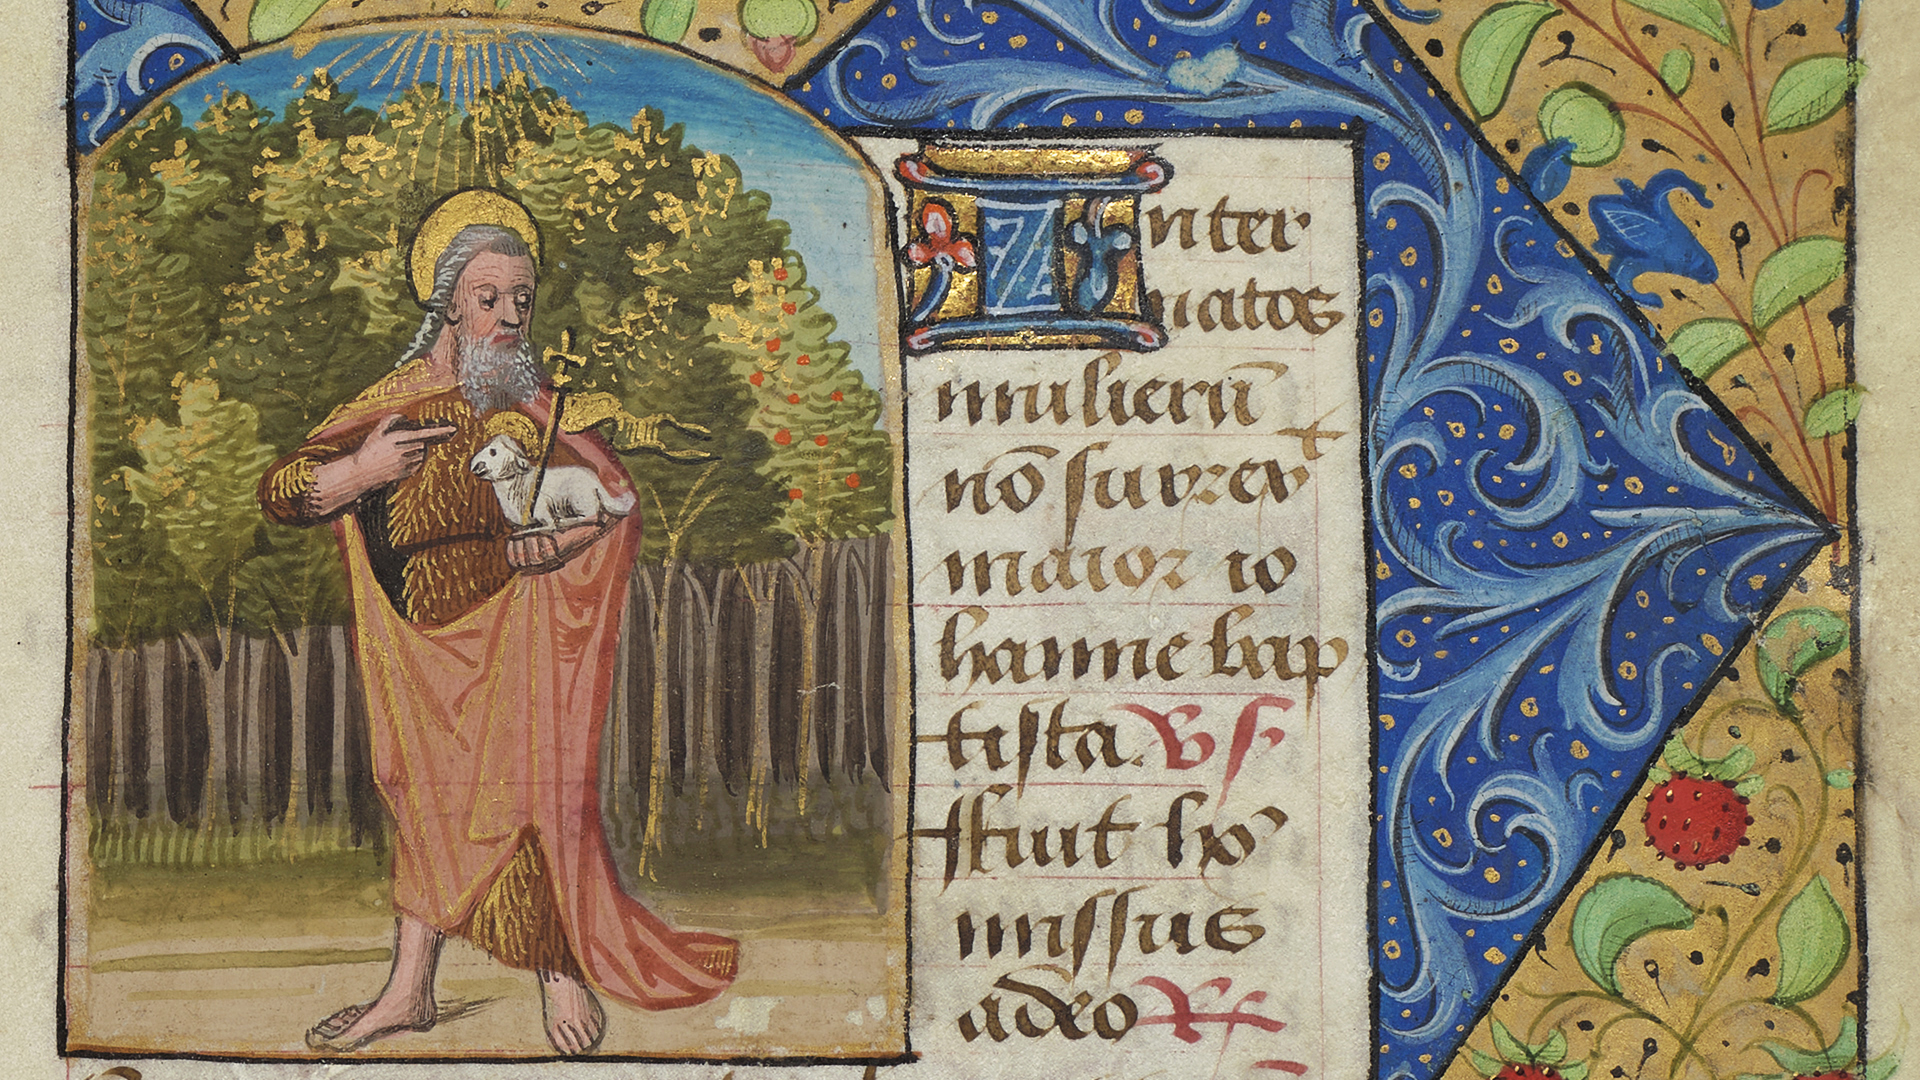 Inter
natos
mulierū
nō surrex
maior io
hanne bap
tista. vs
ffuit ho
missus
adeo R